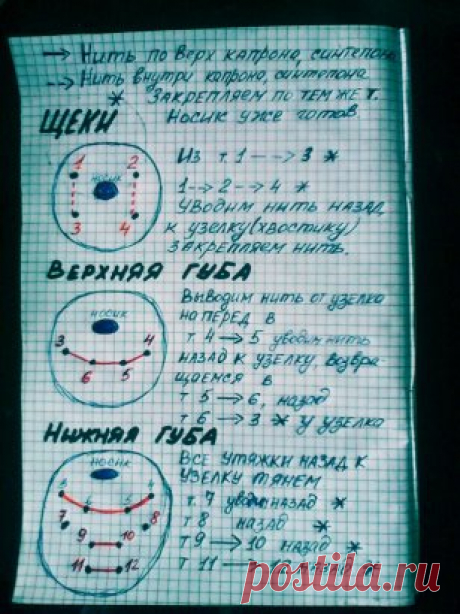 → Нить по верх капрона, синтепона
--> Нить внутри капрона, синтепона
* Закрепляем по тем же т.
ЩЕКИ
Носик уже готов.
1 2
носик
3 4
Из т. 1 --> 3 *
1 --> 2 --> 4 *
Уводим нить назад
к узелку (хвостику)
закрепляем нить.
ВЕРХНЯЯ ГУБА
носик
3 4
6 5
Выводим нить от узелка
на перед в
т. 4 → 5 уводим нить
назад к узелку, возвра-
щаемся в
т 5 → 6, назад
т 6 → 3 * у узелка
НИЖНЯЯ ГУБА
носик
3 4
6 5
7 8
9 10
11 12
Все утяжки назад к
узелку тянем
т. 7 уводим назад *
т 8 назад *
т 9 → 10 назад *
т 11 →
postila.ru